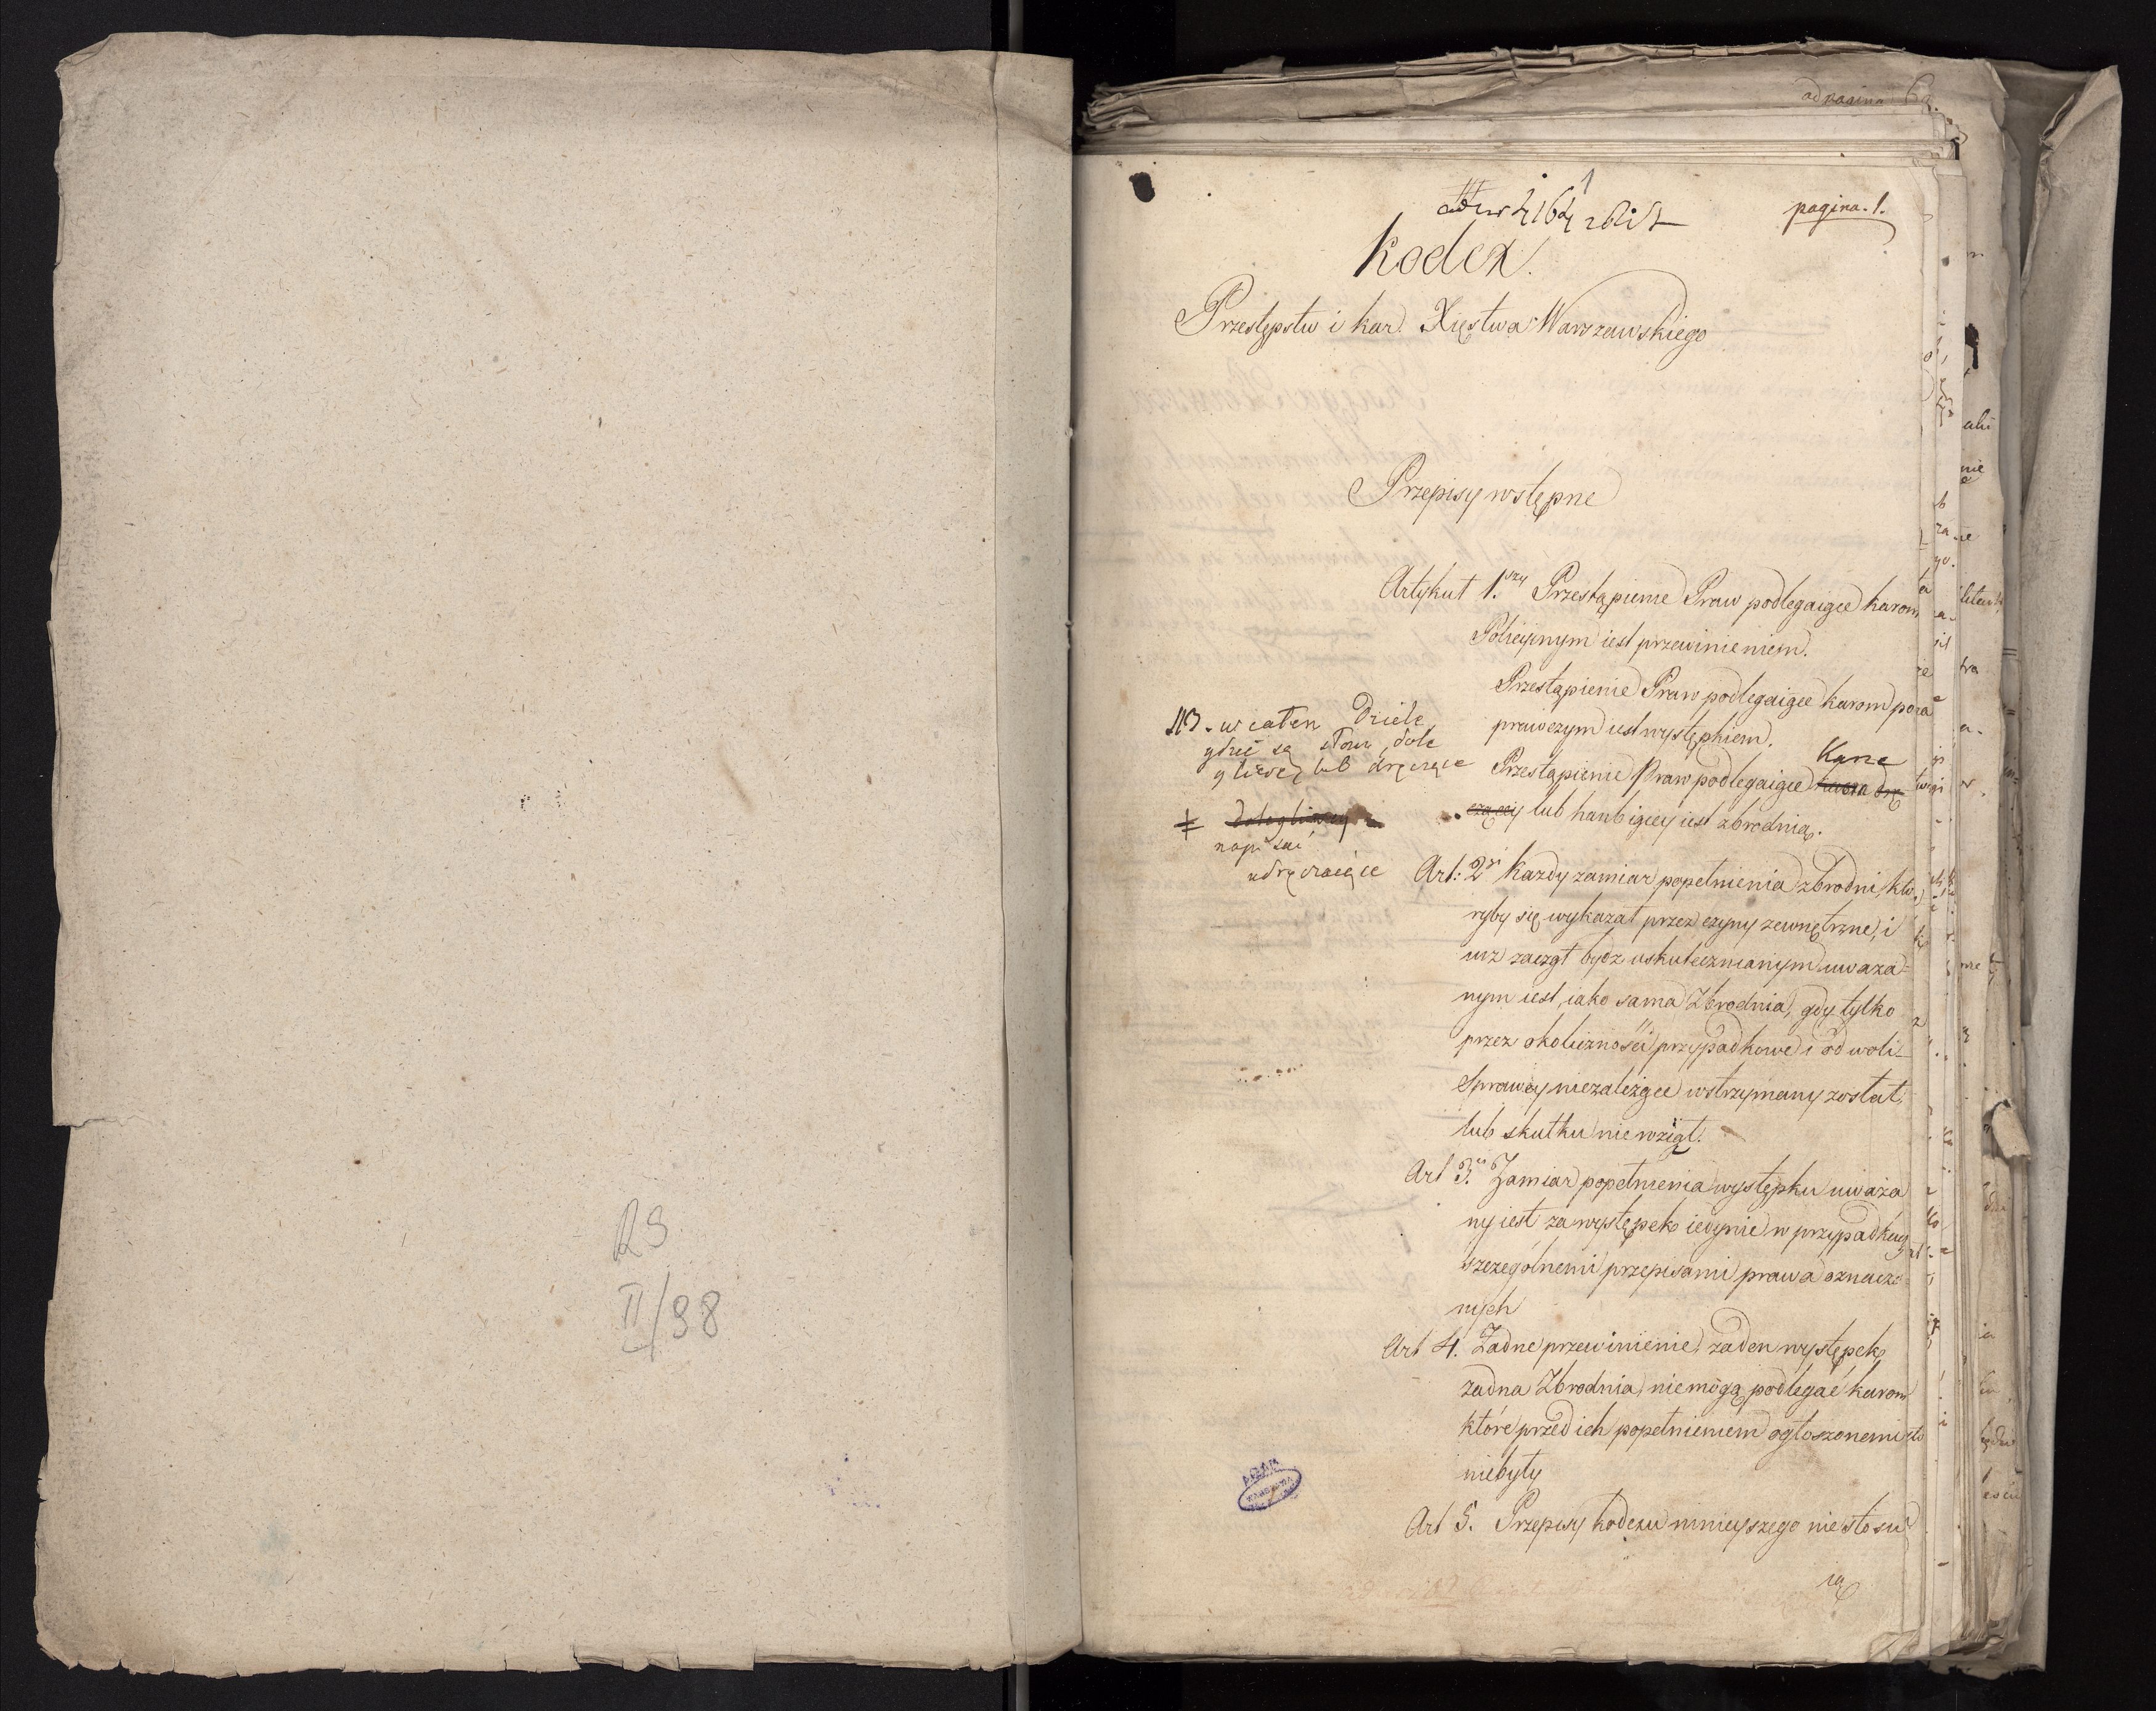 RS
II/98
ad pagina 6
1
pagina. 1.
Kodex.
Przestępstw i kar. Xięstwa Warszawskiego
Przepisy wstępne
Artykuł 1.szy Przestąpienie Praw podlegaiące karom
Policyjnym iest przewinieniem.
Przestąpienie Praw podlegaiące karom popra
prawczym iest występkiem.
NB. w całem Dziele
gdzie są słowa dole
gliwey lub dręczące
Karze
Przestąpienie Praw podlegaiące karze drę
czącey lub hanbiącey iest zbrodnią.
dolegliwey
napisać
udręczaiące
Art: 2gi Kazdy zamiar popełnienia zbrodni, któ
ryby się wykazał przez czyny zewnętrzne, i
iuz zaczął bydz uskutecznianym uwaza=
nym iest, iako sama Zbrodnia, gdy tylko
przez okoliczności przypadkowe i od woli
Sprawcy niezależące wstrzymany został,
lub skutku nie wziął.
Art 3. Zamiar popełnienia występku uważa
ny iest za występek iedynie w przypadkach
szczególnemi przepisami prawa oznaczo=
nych
Art 4. Żadne przewinienie, żaden występek,
żadna Zbrodnia, niemogą podlegać karom
które przed ich popełnieniem ogłoszonemi
niebyły
Art 5. Przepisy kodexu ninieyszego nie stosu
ią